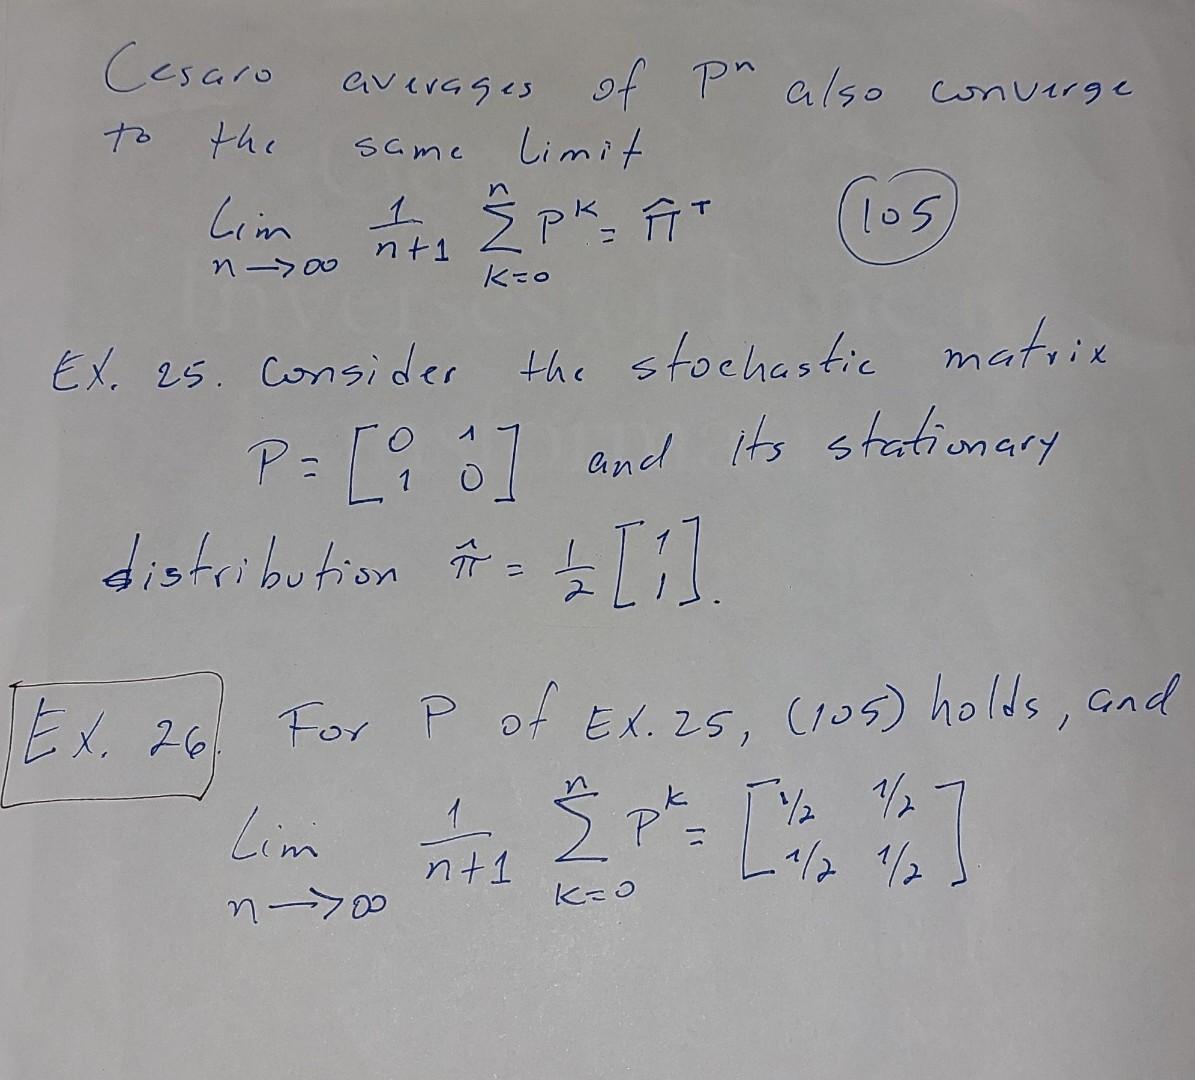 Cesaro averages of Pⁿ also converge
to the same limit
lim n→∞ 1/(n+1) Σ_{k=0}^{n} P^k = π̂ᵀ (105)
EX. 25. Consider the stochastic matrix
P = [0 1; 1 0] and its stationary
distribution π̂ = 1/2 [1; 1].
EX. 26. For P of EX. 25, (105) holds, and
Lim n→∞ 1/(n+1) Σ_{k=0}^{n} P^k = [1/2 1/2; 1/2 1/2]